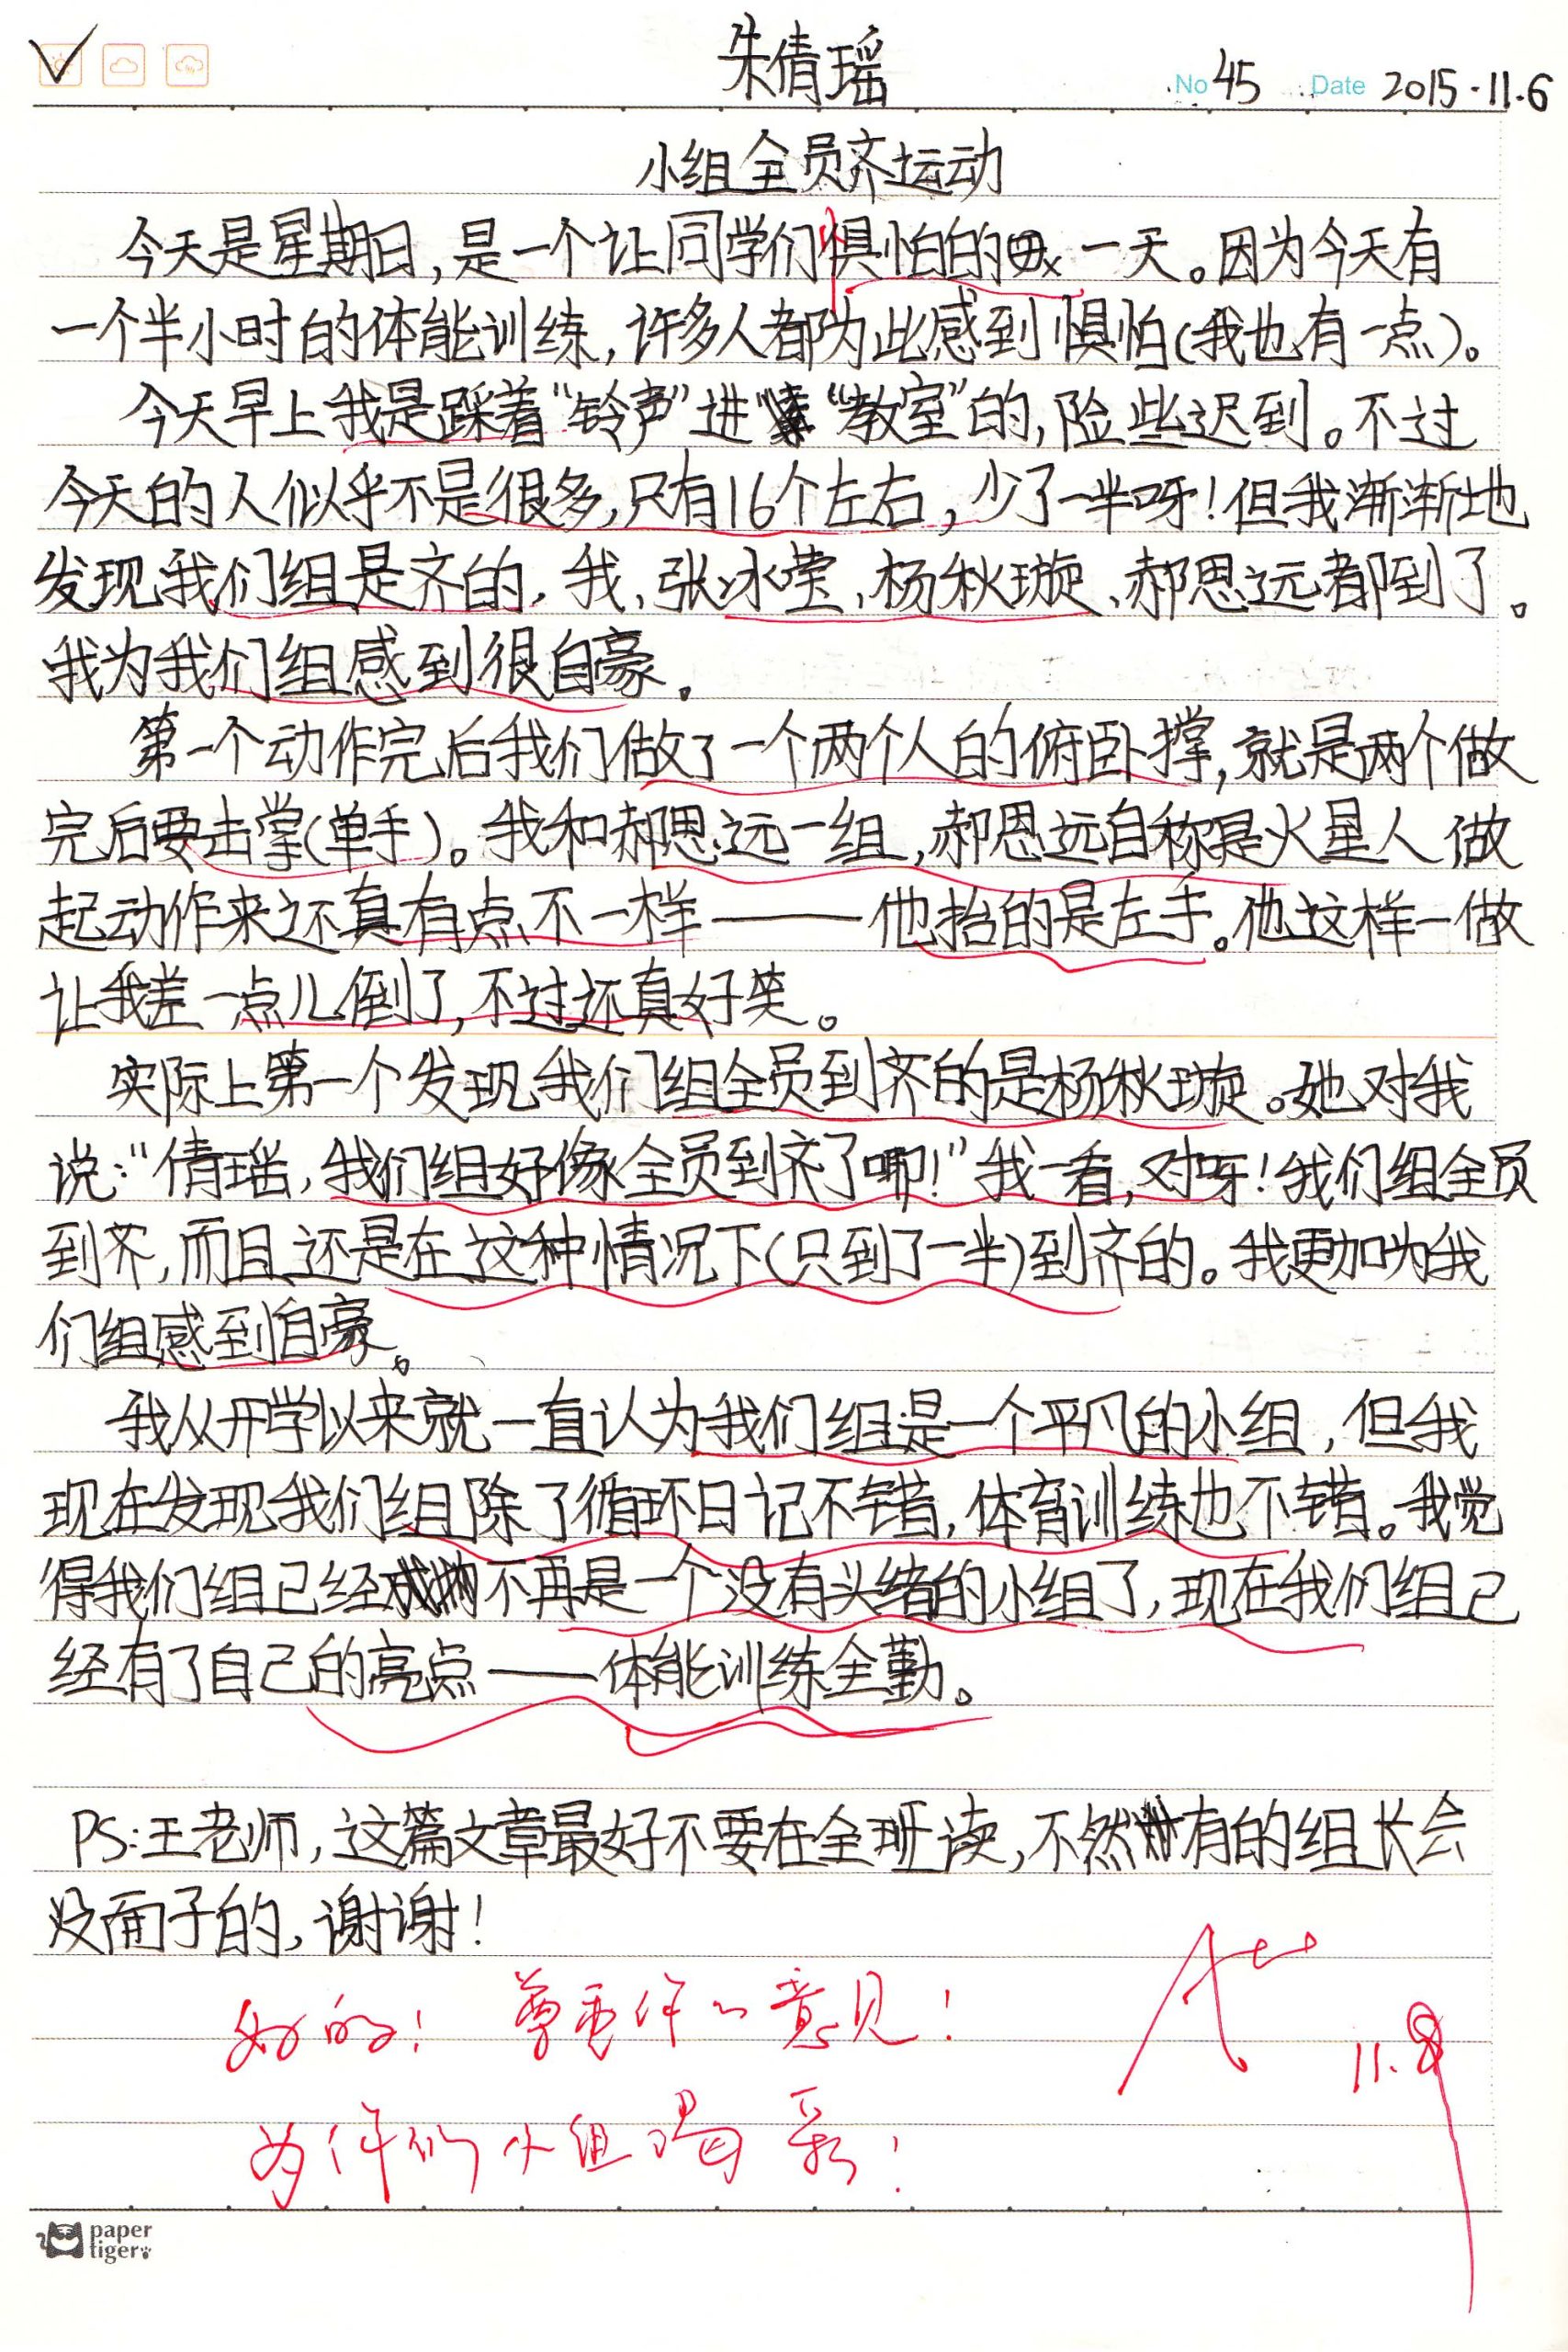 朱倩瑶
No 45 Date 2015.11.6
小组全员齐运动
今天是星期日,是一个让同学们惧怕的一天。因为今天有
一个半小时的体能训练,许多人都为此感到惧怕(我也有一点)。
今天早上我是踩着“铃声”进“教室”的,险些迟到。不过
今天的人似乎不是很多,只有16个左右,少了一半呀!但我渐渐地
发现我们组是齐的,我、张冰莹、杨秋璇、郝思远都到了。
我为我们组感到很自豪。
第一个动作完后我们做了一个两个人的俯卧撑,就是两个做
完后要击掌(单手)。我和郝思远一组,郝思远自称是火星人做
起动作来还真有点不一样——他抬的是左手。他这样一做
让我差一点儿倒了,不过还真好笑。
实际上第一个发现我们组全员到齐的是杨秋璇。她对我
说:“倩瑶,我们组好像全员到齐了哪!”我一看,对呀!我们组全员
到齐,而且还是在这种情况下(只到了一半)到齐的。我更加为我
们组感到自豪。
我从开学以来就一直认为我们组是一个平凡的小组,但我
现在发现我们组除了循环日记不错,体育训练也不错。我觉
得我们组已经不再是一个没有头绪的小组了,现在我们组已
经有了自己的亮点——体能训练全勤。
PS:王老师,这篇文章最好不要在全班读,不然有的组长会
没面子的,谢谢!
好的!尊重你的意见!
A++
11.8
为你们小组喝彩!
paper
tiger